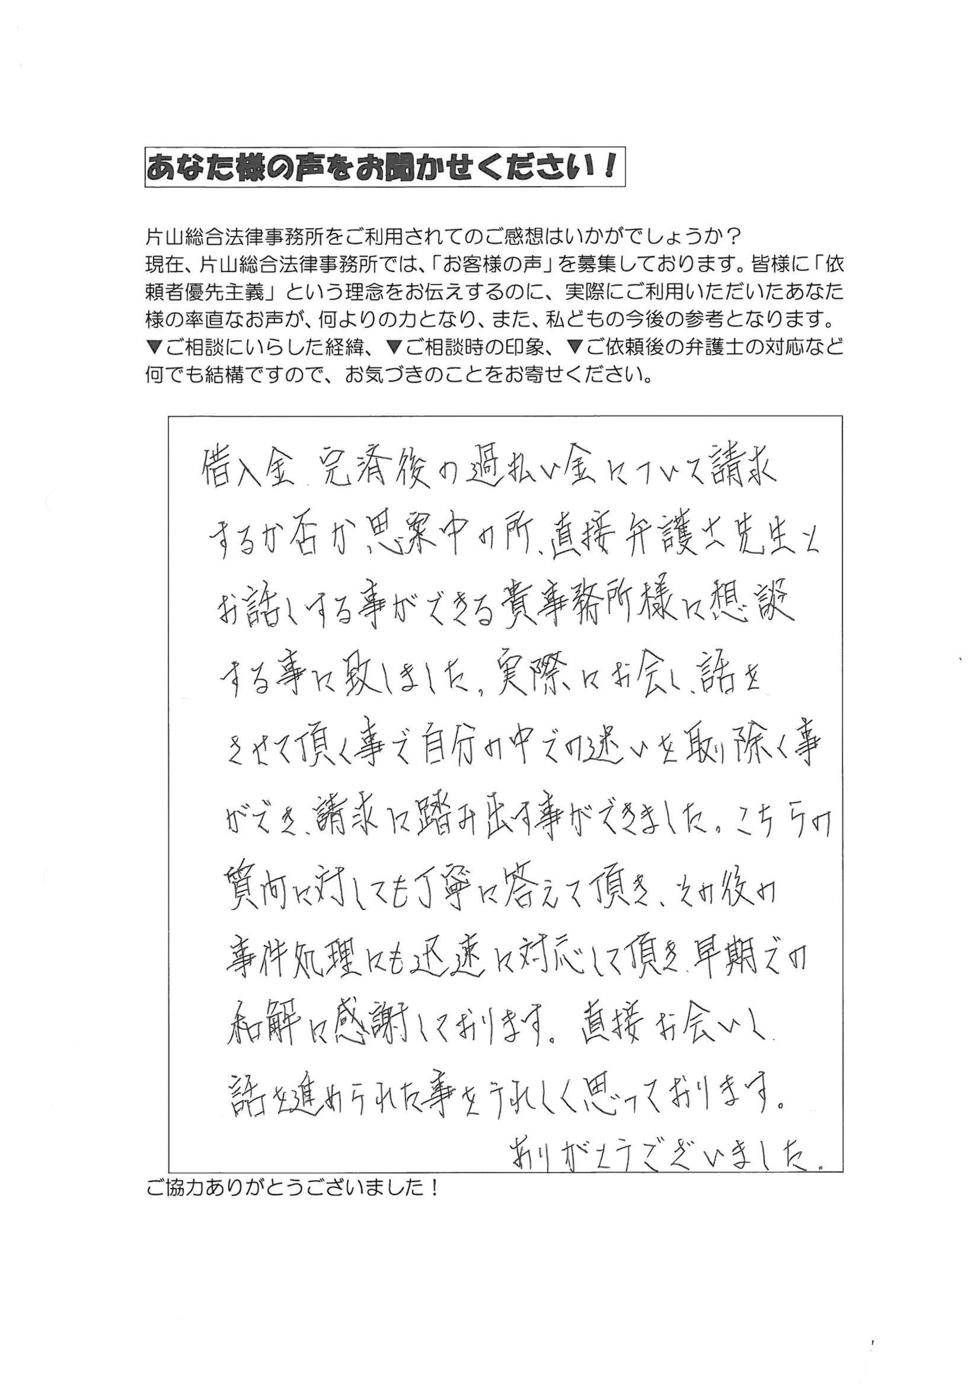 あなた様の声をお聞かせください！
片山総合法律事務所をご利用されてのご感想はいかがでしょうか？
現在、片山総合法律事務所では、「お客様の声」を募集しております。皆様に「依
頼者優先主義」という理念をお伝えするのに、実際にご利用いただいたあなた
様の率直なお声が、何よりの力となり、また、私どもの今後の参考となります。
▼ご相談にいらした経緯、▼ご相談時の印象、▼ご依頼後の弁護士の対応など
何でも結構ですので、お気づきのことをお寄せください。
借入金完済後の過払い金について請求
するか否か思案中の所、直接弁護士先生と
お話しする事ができる貴事務所様に想談
する事に致しました。実際にお会し、話を
させて頂く事で自分の中での迷いを取り除く事
ができ、請求に踏み出す事ができました。こちらの
質問に対しても丁寧に答えて頂き、その後の
事件処理にも迅速に対応して頂き、早期での
和解に感謝しております。直接お会いし
話を進められた事をうれしく思っております。
ありがとうございました。
ご協力ありがとうございました！